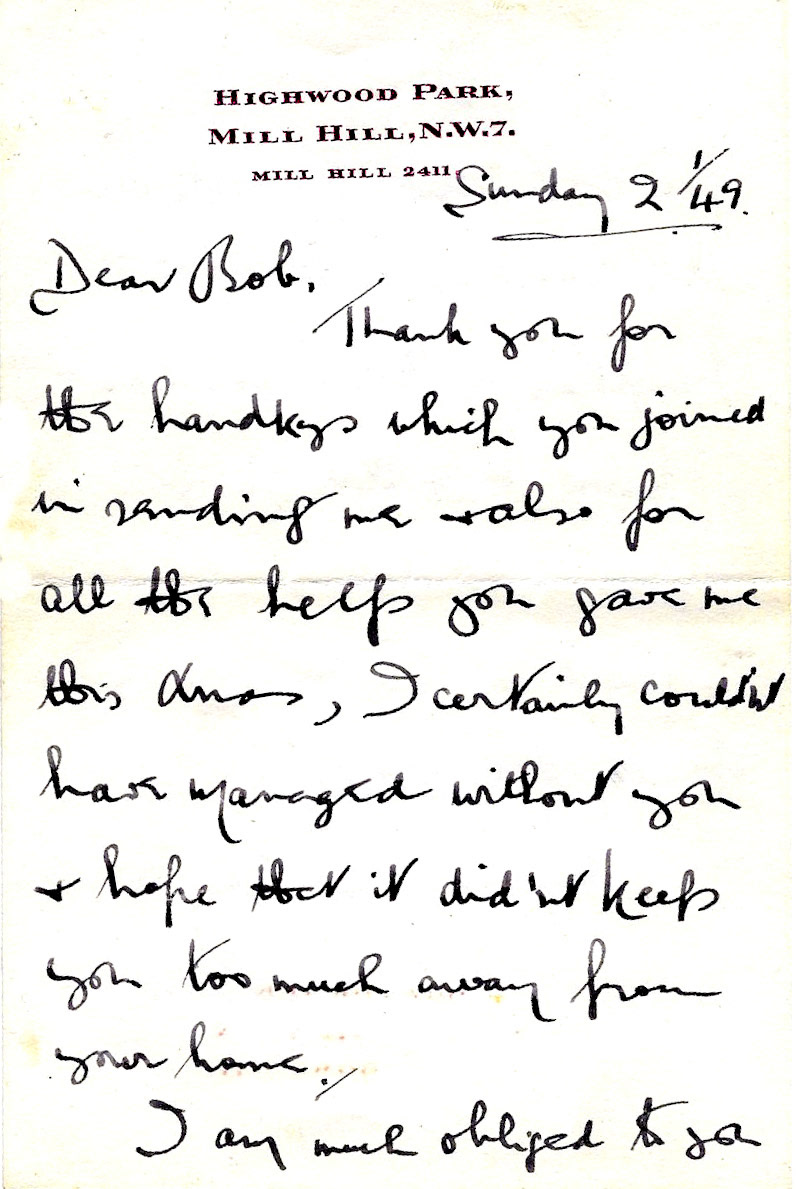 HIGHWOOD PARK,
MILL HILL, N.W.7.
MILL HILL 2411.
Sunday 2 1/49.
Dear Bob,
Thank you for
the handkys which you joined
in sending me + also for
all the help you gave me
this Xmas, I certainly could'nt
have managed without you
+ hope that it did'nt keep
you too much away from
your home.
I am much obliged to you